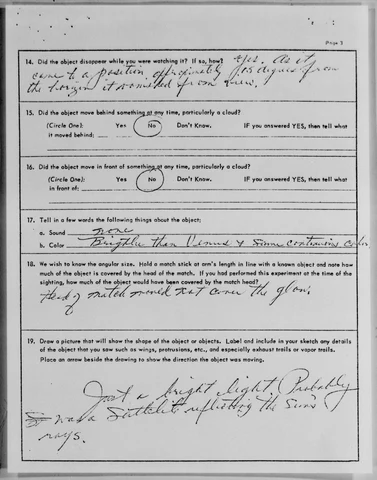 Page 3
14. Did the object disappear while you were watching it? If so, how? Yes. As it
came to a position approximately 105 degrees from
the horizon it vanished from view.
15. Did the object move behind something at any time, particularly a cloud?
(Circle One): Yes No Don't Know. IF you answered YES, then tell what
it moved behind:
16. Did the object move in front of something at any time, particularly a cloud?
(Circle One): Yes No Don't Know. IF you answered YES, then tell what
in front of:
17. Tell in a few words the following things about the object:
a. Sound none
b. Color Brigther than Venus & Same continuous color
18. We wish to know the angular size. Hold a match stick at arm's length in line with a known object and note how
much of the object is covered by the head of the match. If you had performed this experiment at the time of the
sighting, how much of the object would have been covered by the match head?
Head of match would not cover the glow.
19. Draw a picture that will show the shape of the object or objects. Label and include in your sketch any details
of the object that you saw such as wings, protrusions, etc., and especially exhaust trails or vapor trails.
Place an arrow beside the drawing to show the direction the object was moving.
Just a bright light. Probably
was a Sattelite reflecting the Sun's
rays.